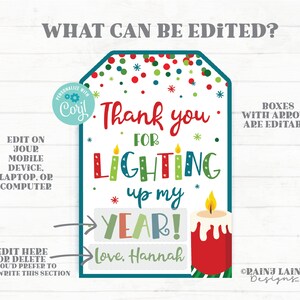 WHAT CAN BE EDITED?
PERSONALIZE WITH
Corjl
Thank you
FOR
LIGHTING
up my
YEAR!
Love, Hannah
EDIT ON
YOUR
MOBILE
DEVICE,
LAPTOP, OR
COMPUTER
BOXES
WITH ARRO
ARE EDITAB
EDIT HERE
OR DELETE
OU'D PREFER TO
WRITE THIS SECTION
©RAINY LAIN
Designs